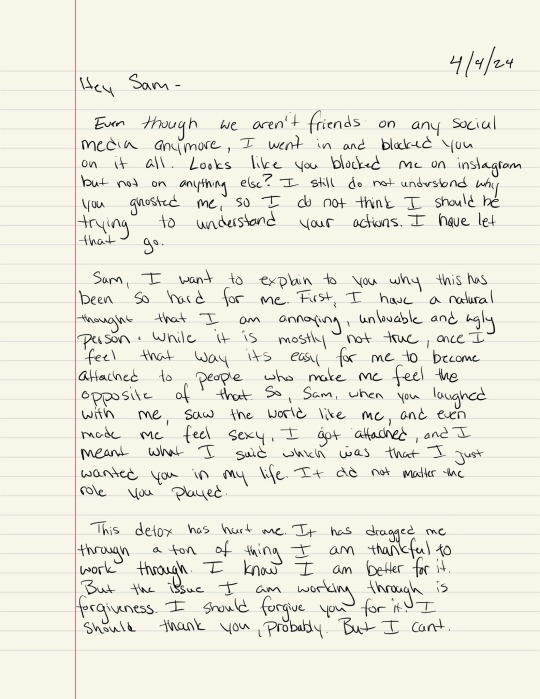 4/4/24
Hey Sam -
Even though we aren't friends on any social
media anymore, I went in and blocked you
on it all. Looks like you blocked me on instagram
but not on anything else? I still do not understand why
you ghosted me, so I do not think I should be
trying to understand your actions. I have let
that go.
Sam, I want to explain to you why this has
been so hard for me. First, I have a natural
thought that I am annoying, unlovable and ugly
person. While it is mostly not true, once I
feel that way its easy for me to become
attached to people who make me feel the
opposite of that so, Sam, when you laughed
with me, saw the world like me, and even
made me feel sexy, I got attached, and I
meant what I said which was that I just
wanted you in my life. It did not matter the
role you played.
This detox has hurt me. It has dragged me
through a ton of thing I am thankful to
work through. I know I am better for it.
But the issue I am working through is
forgiveness. I should forgive you for it. I
should thank you, probably. But I cant.